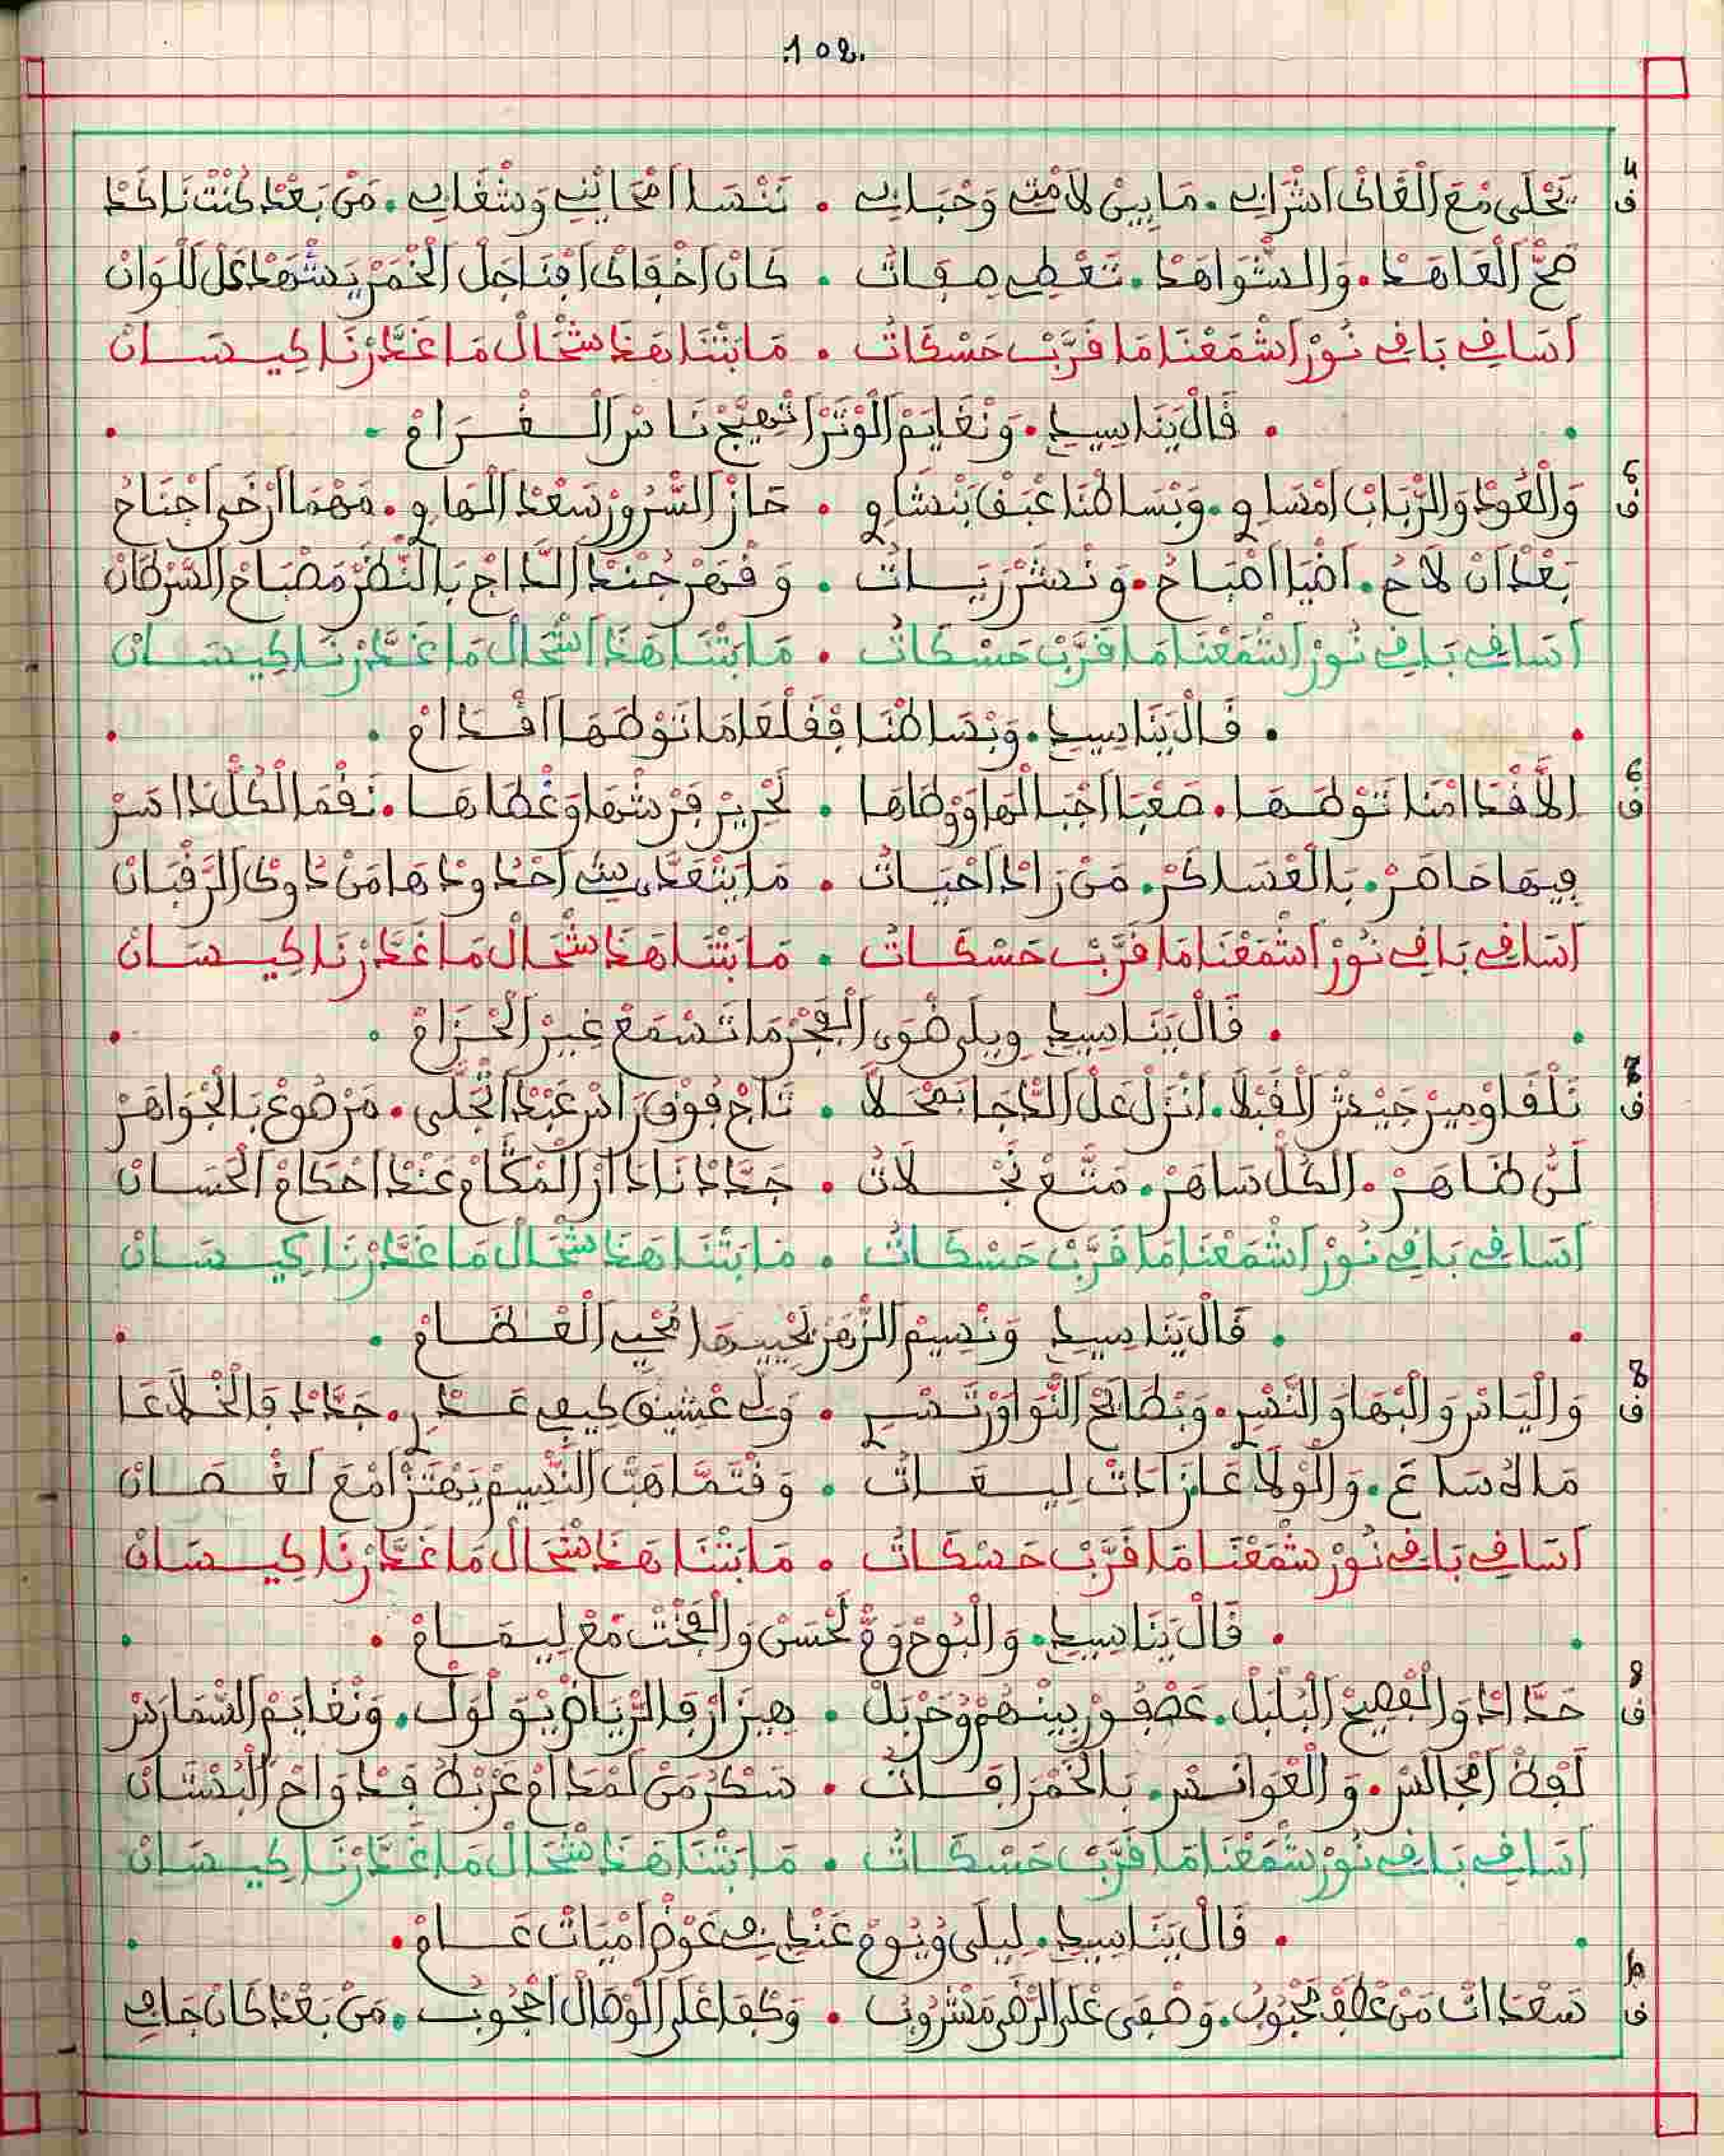 .102.
4
ف يَحْلَى مْعَ الْڭَانْ اشْرَابِي • مَا بِينْ لَامْتِي وَحْبَابِي • نَنْسَا امْحَايْنِي وَشْغَابِي • مَنْ بَعْدْ كُنْتْ نَاكَدْ
صَحّْ الْعَاهَدْ • وَالشّْوَاهَدْ • تَعْطِي صِفَاتُ • كَانْ اخْفَاكْ افْنَاجَلْ الْخْمَرْ يَشْهَدْ عَلْ لَلْوَانْ
اسَاقِي بَاقِي نُورْ اشْمَعْنَا مَا قَرَّبْ حَسْكَاتُ • مَا بَتْنَا هَذَا شْحَالْ مَا غَدَّرْنَا كِيسَانْ
• قَالْ يَنَا سِيدِي • وَنْغَايَمْ الْوْتَرْ اتْهَيَّجْ نَاسْ الْغْرَامْ •
5
ف وَالْعُودْ وَالرّْبَابْ امْسَاوِي • وَبْسَاطْنَا عْبَقْ بَنْشَاوِي • حَازْ السّْرُورْ سَعْدْ الْهَاوِي • مَهْمَا ارْخَى اجْنَاحُ
بَعْدْ انْ لَاحُ • اضْيَا اصْبَاحُ • وَنْشَرْ رَيَاتُ • وَقْهَرْ جُنْدْ الدَّاجْ بَالنّْظَرْ مَصْبَاحْ السَّرْطَانْ
اسَاقِي بَاقِي نُورْ اشْمَعْنَا مَا قَرَّبْ حَسْكَاتُ • مَا بَتْنَا هَذَا اشْحَالْ مَا غَدَّرْنَا كِيسَانْ
• قَالْ يَنَا سِيدِي • وَبْسَاطْنَا فْقَلْعَا مَا تَوْطَهَا اقْدَامْ •
6
ف الَاقْدَامْنَا تَوْطَهَا • صَعْبَا اجْبَالْهَا وَوْطَاهَا • لَحْرِيرْ فَرْشْهَا وَغْطَاهَا • نَقْمَا لْكُلّْ دَاسَرْ
فِيهَا حَاصَرْ • بَالْعْسَاكَرْ • مَنْ رَادْ احْيَاتُ • مَا يَتْعَدَّى شِي احْدُودْهَا مَنْ دَاوْكْ الرَّقْبَانْ
اسَاقِي بَاقِي نُورْ اشْمَعْنَا مَا قَرَّبْ حَسْكَاتُ • مَا بَتْنَا هَذَا شْحَالْ مَا غَدَّرْنَا كِيسَانْ
• قَالْ يَنَا سِيدِي وِيلَى ضْوَى الْفْجَرْ مَا تَسْمَعْ غِيرْ الْحْزَامْ •
7
ف تَلْقَا وْمِيرْ جَيْشْ الْقَبْلَا • انْزَلْ عَلْ الدّْجَا بَمْحَلَّا • تَاجْ فُوقْ رَاسْ عَبْدْ اتْجَلَّى • مَرْصُوعْ بَالْجْوَاهَرْ
لَنّْ ظَاهَرْ • الْكُلّْ سَاهَرْ • مَتَّعْ نَجْلَاتُ • جَدَّادْ نَادَا ارْ الْمْكَامْ عَنْدْ احْكَامْ الْحَسَانْ
اسَاقِي بَاقِي نُورْ اشْمَعْنَا مَا قَرَّبْ حَسْكَاتُ • مَا بَتْنَا هَذَا شْحَالْ مَا غَدَّرْنَا كِيسَانْ
• قَالْ يَنَا سِيدِي وَنْسِيمْ الزّْهَرْ يَحْيِيهَا مُحْيِي الْعْظَامْ •
8
ف وَالْيَاسْ وَالْبْهَا وَالنَّسْرِي • وَبْطَايَحْ النّْوَاوَرْ تَسْرِي • وَلِّي عْشِيقْ كِيفِي عَدْرِي • جَدَّدْ فَالْخْلَاعَا
مَالُ سَاعَ • وَالْوْلَاعَا زَادَتْ لِيعَاتُ • وَقْتَمَّا هَبّْ النّْسِيمْ يَهْتَزّْ امْعَ لَغْصَانْ
اسَاقِي بَاقِي نُورْ شْمَعْنَا مَا قَرَّبْ حَسْكَاتُ • مَا بَتْنَا هَذَا شْحَالْ مَا غَدَّرْنَا كِيسَانْ
• قَالْ يَنَا سِيدِي • وَالْبُوحْ وَمّْ لَحْسَنْ وَالْفَخْتْ مْعَ لِيمَامْ •
9
ف حَدَّادَا وَالْفْصِيحْ الْبُلْبُلْ • عَصْفُورْ بِينْهُمْ وُخَرْبَلْ • هِيزَارْ فَالرّْيَاضْ يْوَلْوَلْ • وَنْغَايَمْ السّْمَارَسْ
لَغْةْ امْجَالَسْ • وَالْعْوَانَسْ • بَالْخْمَرْ افَاتُ • سَكْرُ مَنْ لَمْدَامْ عَرْبْطُ فَدْوَاحْ الْبُسْتَانْ
اسَاقِي بَاقِي نُورْ شْمَعْنَا مَا قَرَّبْ حَسْكَاتُ • مَا بَتْنَا هَذَا شْحَالْ مَا غَدَّرْنَا كِيسَانْ
• قَالْ يَنَا سِيدِي • لِيلَى وْيُومْ عَنْدِي فِي عَوْضْ امْيَاتْ عَامْ •
10
ف سَعْدَاتْ مَنْ عْطَفْ مَحْبُوبُ • وَصْفَى عْلَى الرّْضَى مَشْرُوبُ • وَكْفَا عْلَى الْوْصَالْ احْجُوبُ • مَنْ بَعْدْ كَانْ جَافِي